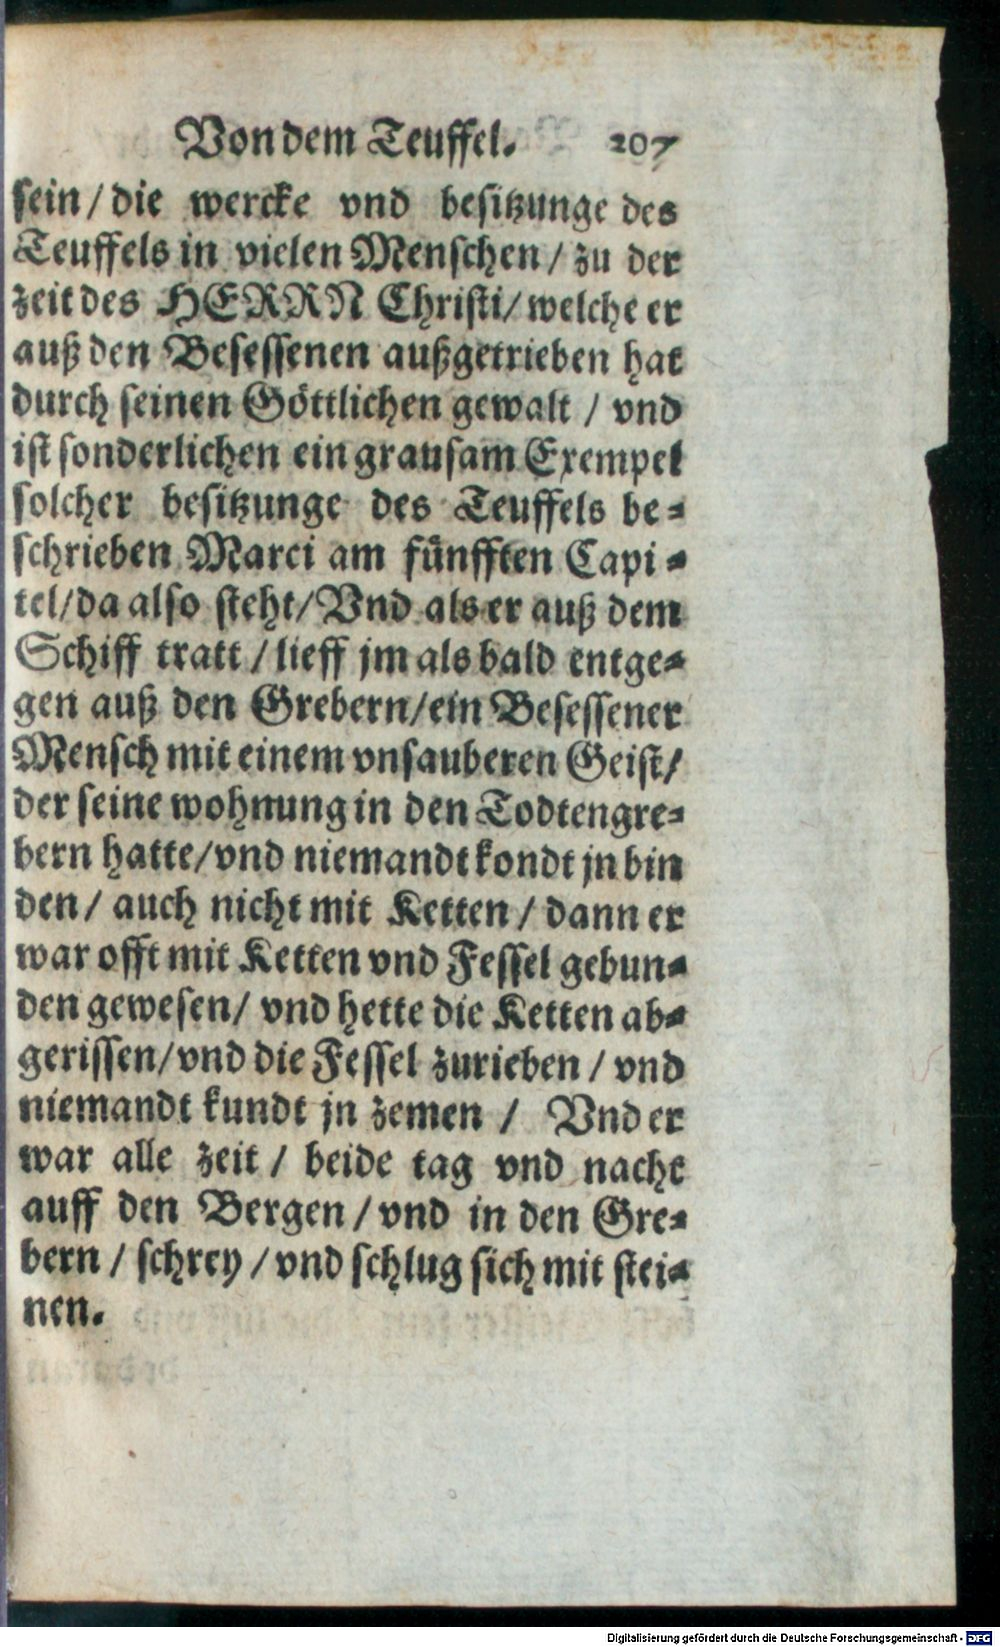 Von dem Teuffel. 207
sein / die wercke vnd besitzunge des
Teuffels in vielen Menschen / zu der
zeit des HERRN Christi / welche er
auß den Besessenen außgetrieben hat
durch seinen Göttlichen gewalt / vnd
ist sonderlichen ein grausam Exempel
solcher besitzunge des Teuffels be-
schrieben Marci am fünfften Capi-
tel / da also steht / Vnd als er auß dem
Schiff tratt / lieff jm als bald entge-
gen auß den Grebern / ein Besessener
Mensch mit einem vnsauberen Geist /
der seine wohnung in den Todtengre-
bern hatte / vnd niemandt kondt jn bin
den / auch nicht mit Ketten / dann er
war offt mit Ketten vnd Fessel gebun-
den gewesen / vnd hette die Ketten ab-
gerissen / vnd die Fessel zurieben / vnd
niemandt kundt jn zemen / Vnd er
war alle zeit / beide tag vnd nacht
auff den Bergen / vnd in den Gre-
bern / schrey / vnd schlug sich mit stei-
nen.
Digitalisierung gefördert durch die Deutsche Forschungsgemeinschaft - DFG